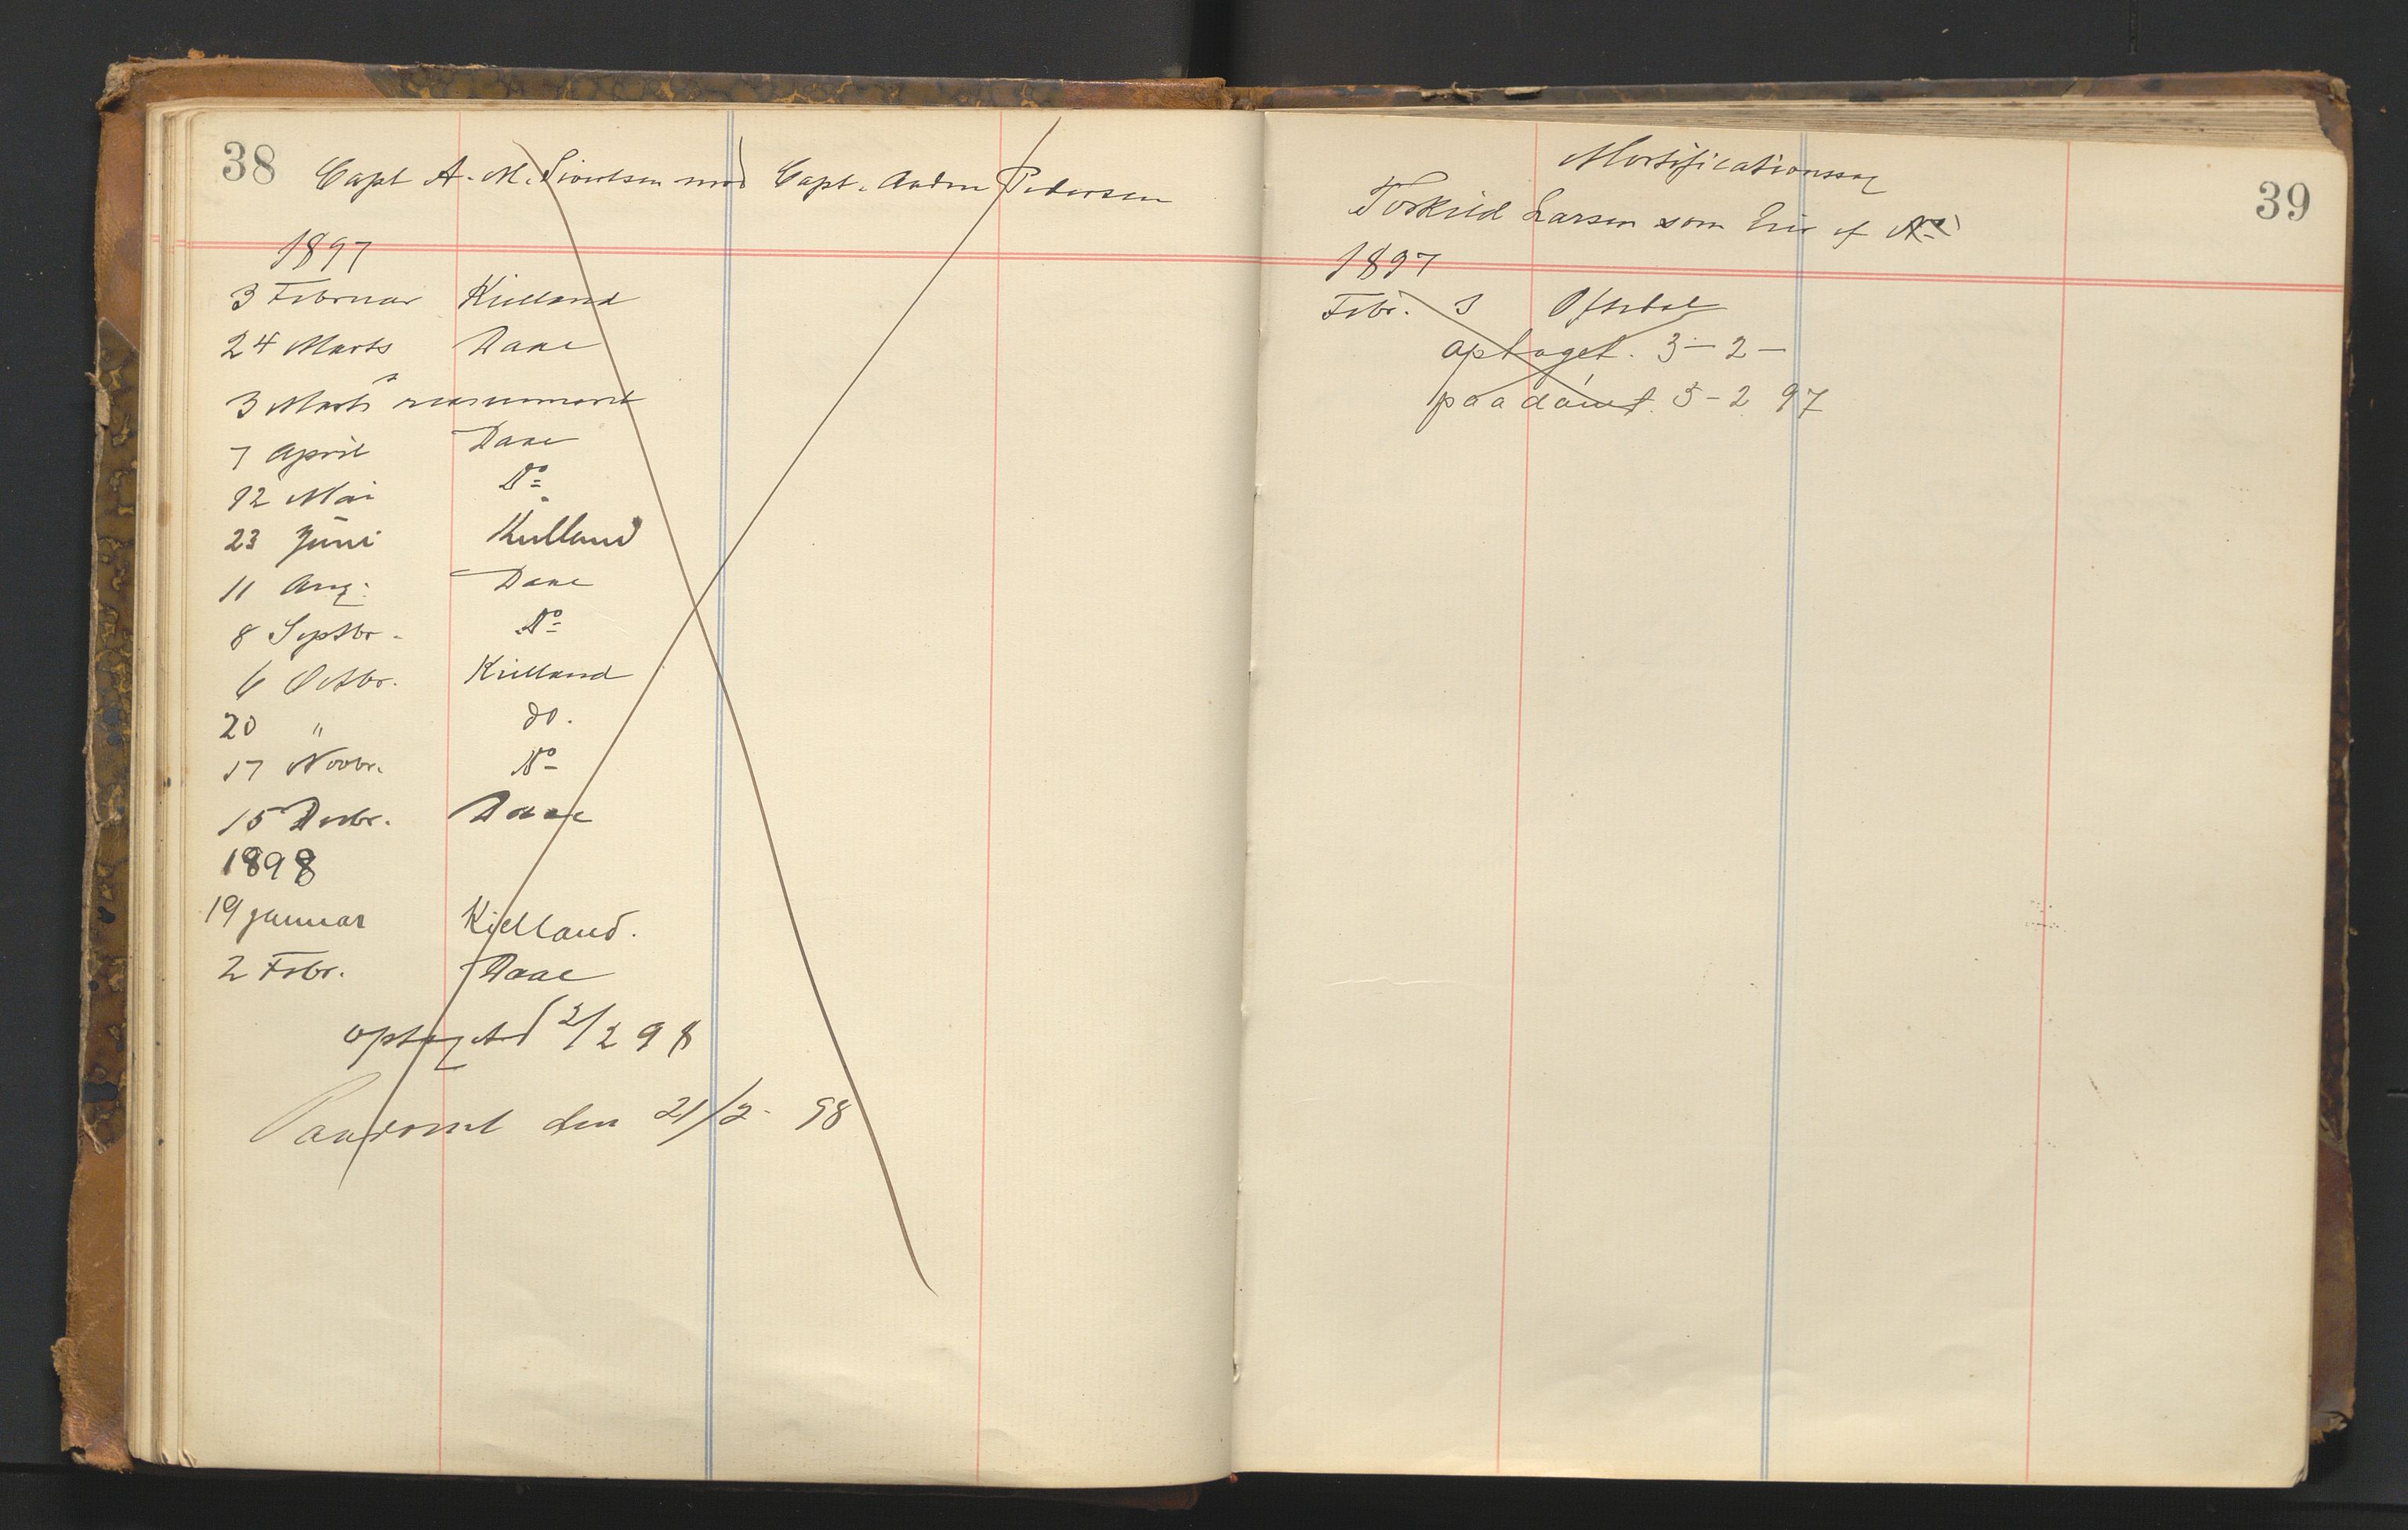 38
Capt A. M. Sivertsen mod Capt. Anders Pedersen
1897
3 Februar Kielland
24 Marts Daae
3 Marts
7 April Daae
12 Mai Do
23 Juni Kielland
11 Aug. Daae
8 Septbr. Do
6 Octbr. Kielland
20 " do.
17 Novbr. Do
15 Decbr. Daae
1898
19 januar Kielland.
2 Febr. Daae
optaget 2/2 98
Paadømt den 21/2 - 98
39
Mortificationssag
Torkild Larsen som Eier af
1897
Febr. 3 Oftedal
optaget. 3 - 2 -
paadømt. 3 - 2 97